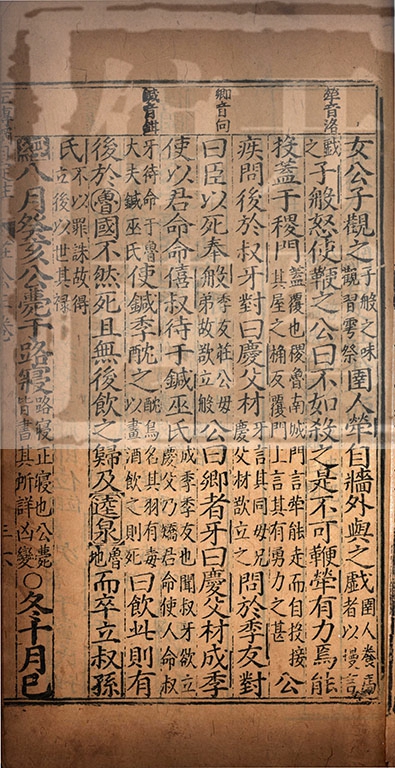 犖音洛
卿音向
鍼音
女公子觀之子般之妹觀習雩祭圉人犖自牆外與之戲圉人養馬者以慢言
戲之子般怒使鞭之公曰不如殺之是不可鞭犖有力焉能
投蓋于稷門蓋覆也稷魯南城門言犖能走而自投接其屋之桷反覆門上言其有勇力之甚公
疾問後於叔牙對曰慶父材牙言其同母兄慶父材欲立之問於季友對
曰臣以死奉般季友莊公母弟故欲立般公曰卿者牙曰慶父材成季
使以君命命僖叔待于鍼巫氏成季季友也聞叔牙欲立慶父乃矯君命使人命叔
牙待命于魯大夫鍼巫氏使鍼季酖之酖鳥名其羽有毒以畫酒飲之則死曰飲此則有
後於魯國不然死且無後飲之歸及逵泉魯地而卒立叔孫
氏不以罪誅故得立後以世其祿
經八月癸亥公薨于路寢路寢正寢也公薨皆書其所詳凶變○冬十月已